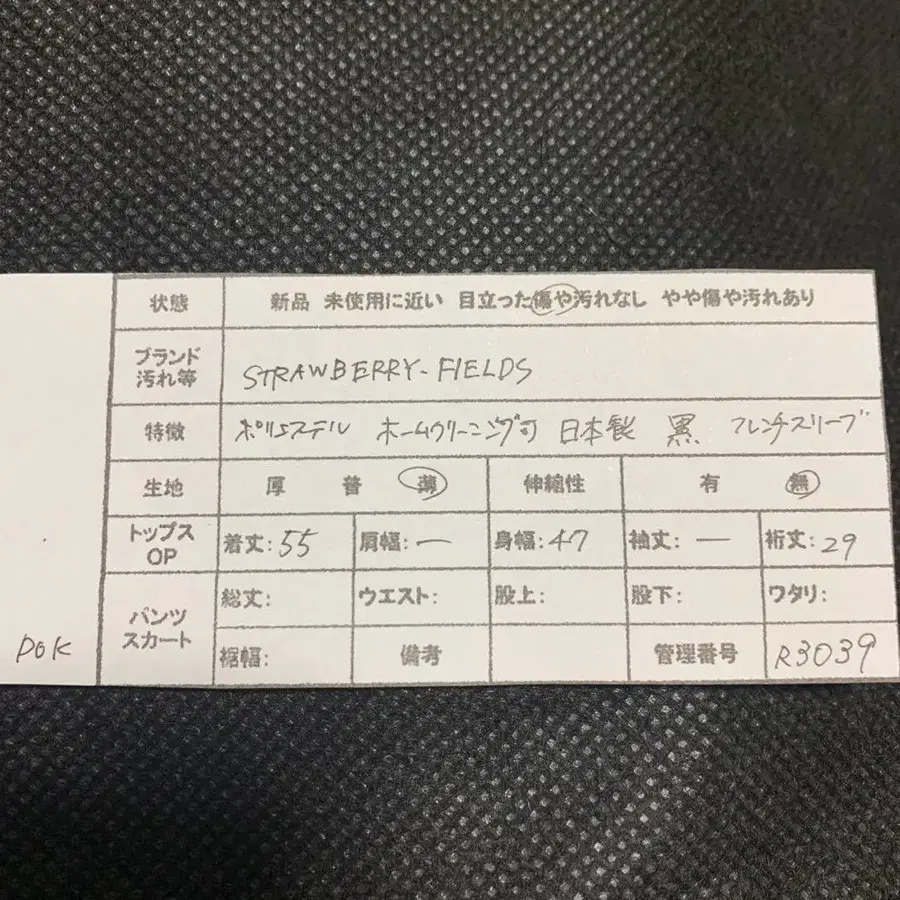 状態 新品 未使用に近い 目立った傷や汚れなし やや傷や汚れあり
ブランド
汚れ等
STRAWBERRY-FIELDS
特徴 ポリエステル ホームクリーニング可 日本製 黒 フレンチスリーブ
生地 厚 普 薄 伸縮性 有 無
トップス
OP
着丈:55 肩幅:ー 身幅:47 袖丈:ー 裄丈:29
パンツ
スカート
総丈: ウエスト: 股上: 股下: ワタリ:
裾幅: 備考 管理番号 R3039
POK